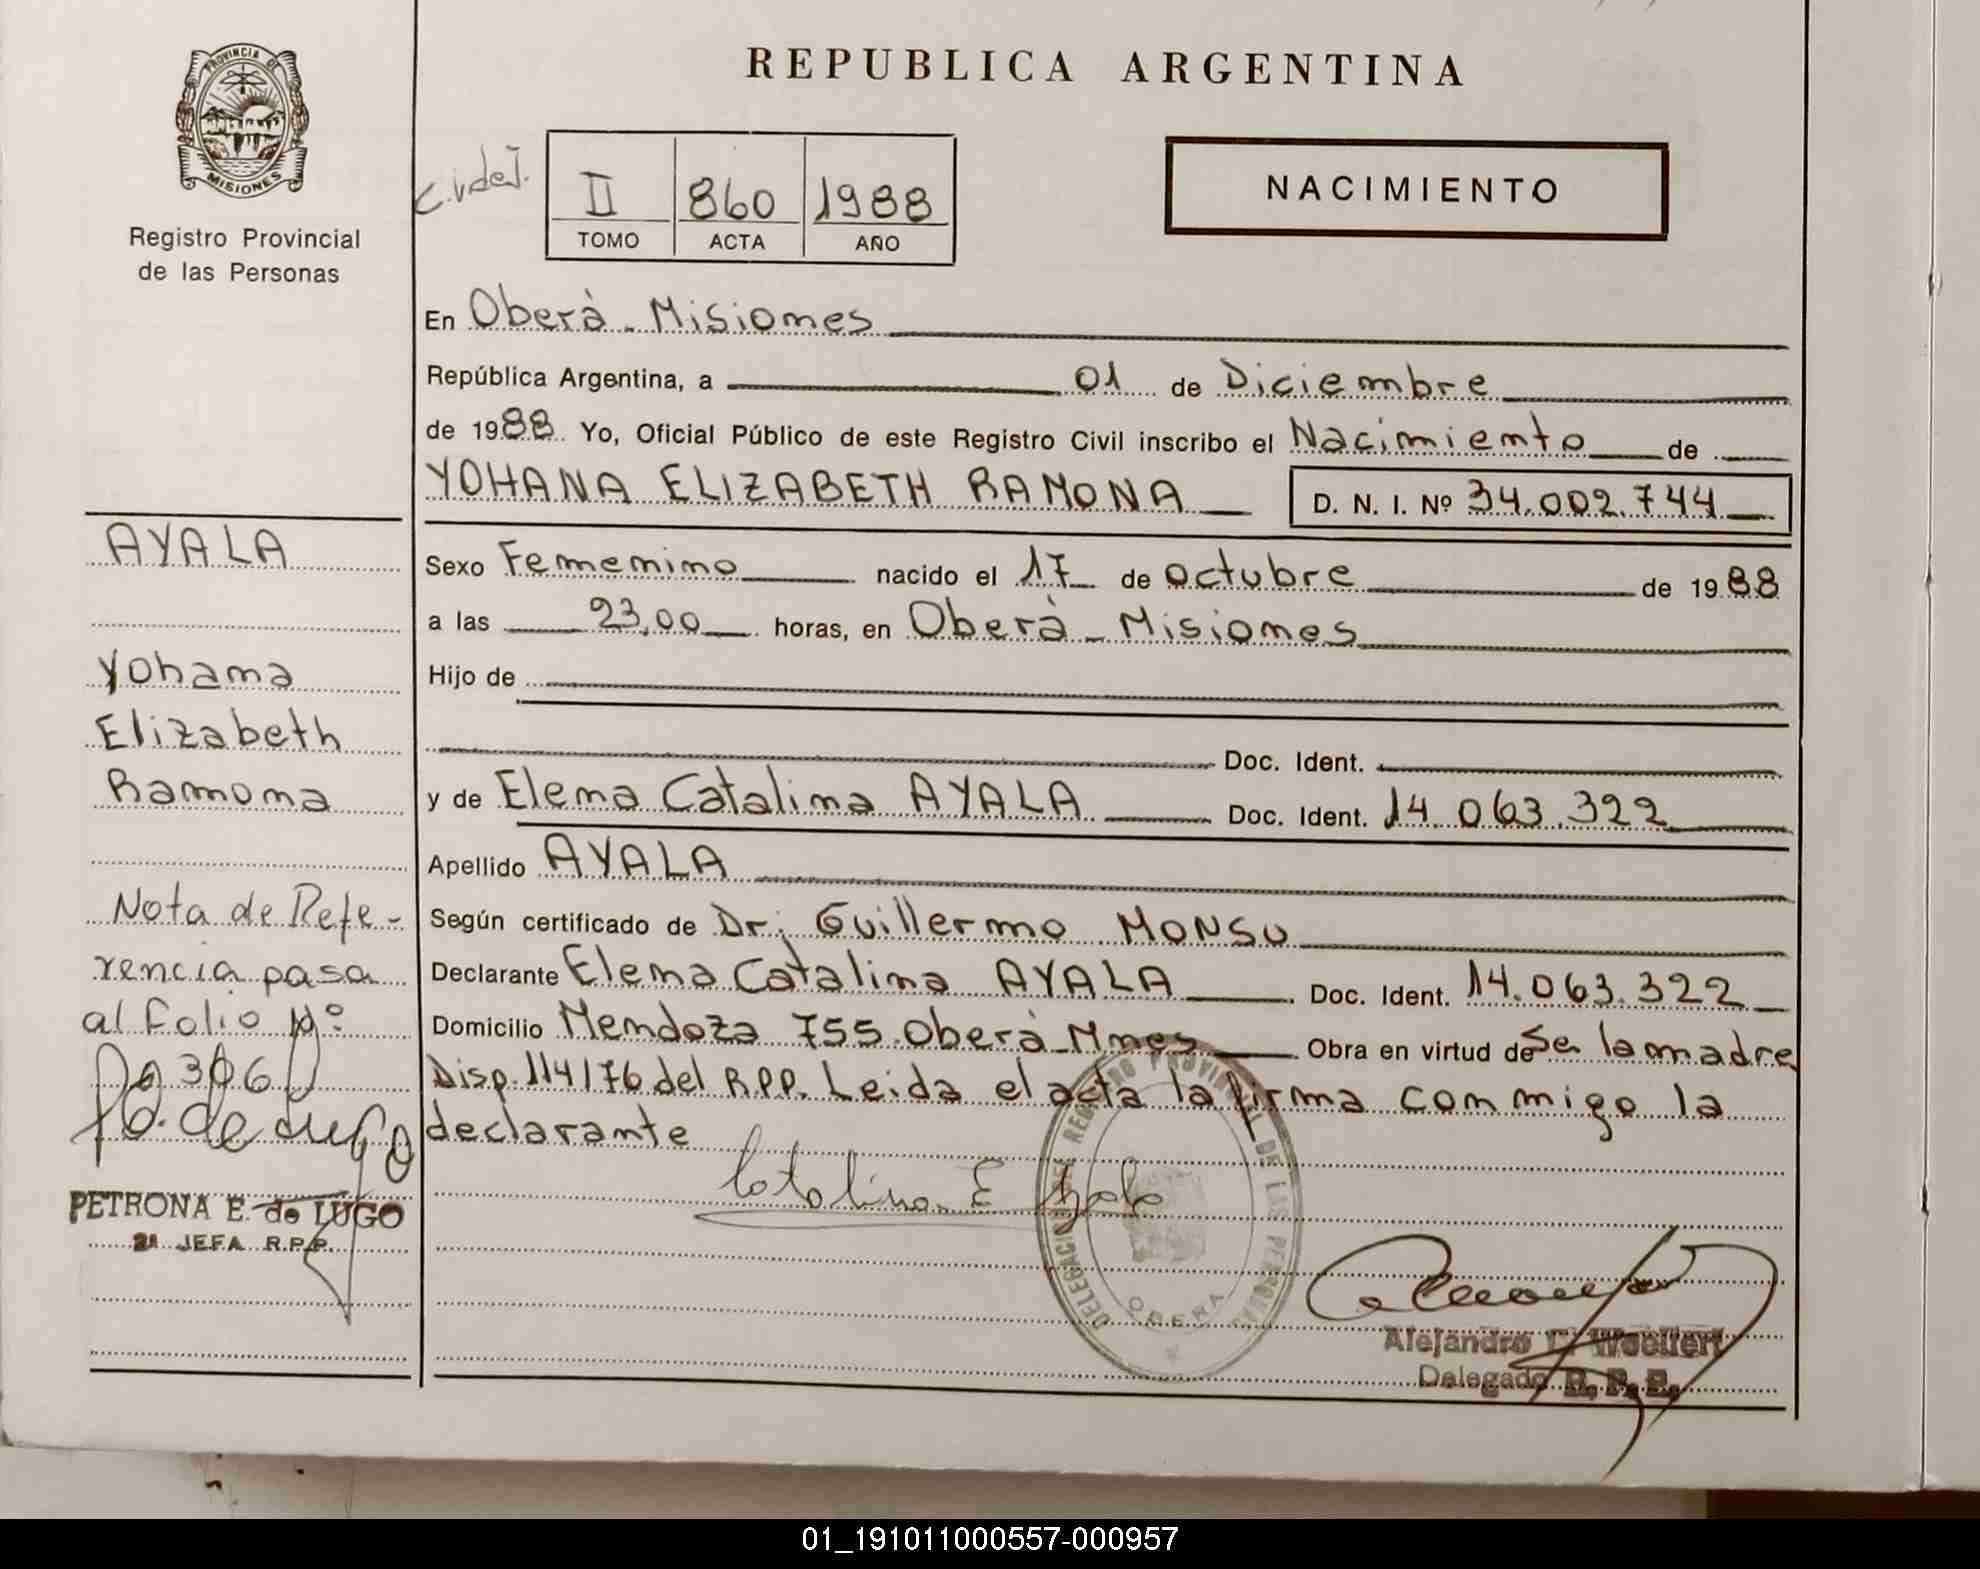 REPUBLICA ARGENTINA
PROVINCIA DE
MISIONES
Registro Provincial
de las Personas
II 860 1988
TOMO ACTA AÑO
NACIMIENTO
En Oberà - Misiones
República Argentina, a 01 de Diciembre
de 1988 Yo, Oficial Público de este Registro Civil inscribo el Nacimiento de
YOHANA ELIZABETH RAMONA D. N. I. Nº 34.002.744
Sexo Femenino nacido el 17 de octubre de 1988
a las 23,00 horas, en Oberà - Misiones
Hijo de
Doc. Ident.
y de Elena Catalina AYALA Doc. Ident. 14.063.322
Apellido AYALA
Según certificado de Dr. Guillermo MONSU
Declarante Elena Catalina AYALA Doc. Ident. 14.063.322
Domicilio Mendoza 755 Oberà - Mnes Obra en virtud de Ser la madre
Disp. 114/76 del R.P.P. Leida el acta la firma conmigo la
declarante
Catalina E Ayala
DELEGACION DEL REGISTRO PROVINCIAL DE LAS PERSONAS
OBERA
Alejandro Woellert
Delegado R. P. P.
AYALA
Yohana
Elizabeth
Ramona
Nota de Refe-
rencia pasa
al Folio Nº
306
P. de Lugo
PETRONA E. de LUGO
2ª JEFA R.P.P.
01_191011000557-000957